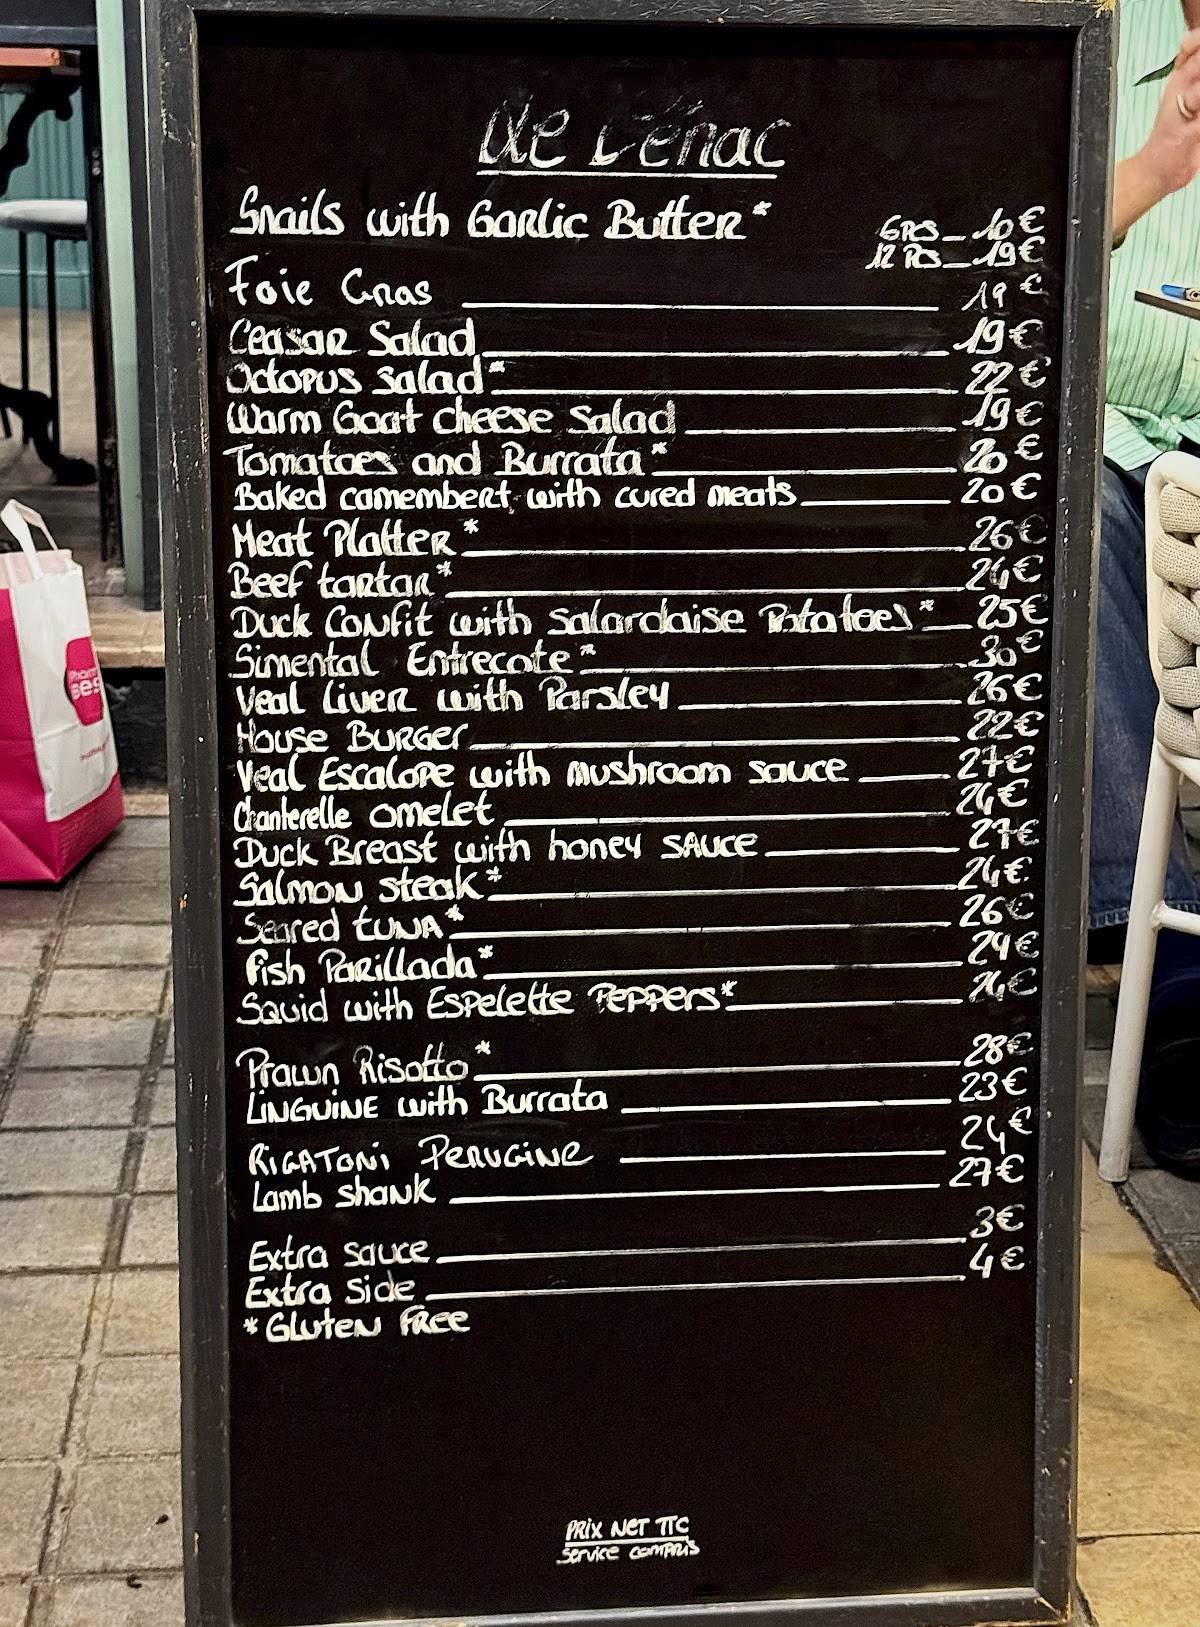 Le Cénac
Snails with Garlic Butter* 6 PCS _ 10€
12 PCS _ 19€
Foie Gras 19€
Ceasar Salad 19€
Octopus Salad* 22€
Warm Goat cheese Salad 19€
Tomatoes and Burrata* 20€
Baked camembert with cured meats 20€
Meat Platter* 26€
Beef tartar* 24€
Duck Confit with Salardaise Potatoes* 25€
Simental Entrecote* 30€
Veal Liver with Parsley 26€
House Burger 22€
Veal Escalope with mushroom sauce 27€
Chanterelle omelet 24€
Duck Breast with honey sauce 27€
Salmon steak* 24€
Seared tuna* 26€
Fish Parillada* 24€
Squid with Espelette Peppers* 24€
Prawn Risotto* 28€
Linguine with Burrata 23€
Rigatoni Perugine 24€
Lamb shank 27€
Extra sauce 3€
Extra Side 4€
*Gluten Free
PRIX NET TTC
Service compris